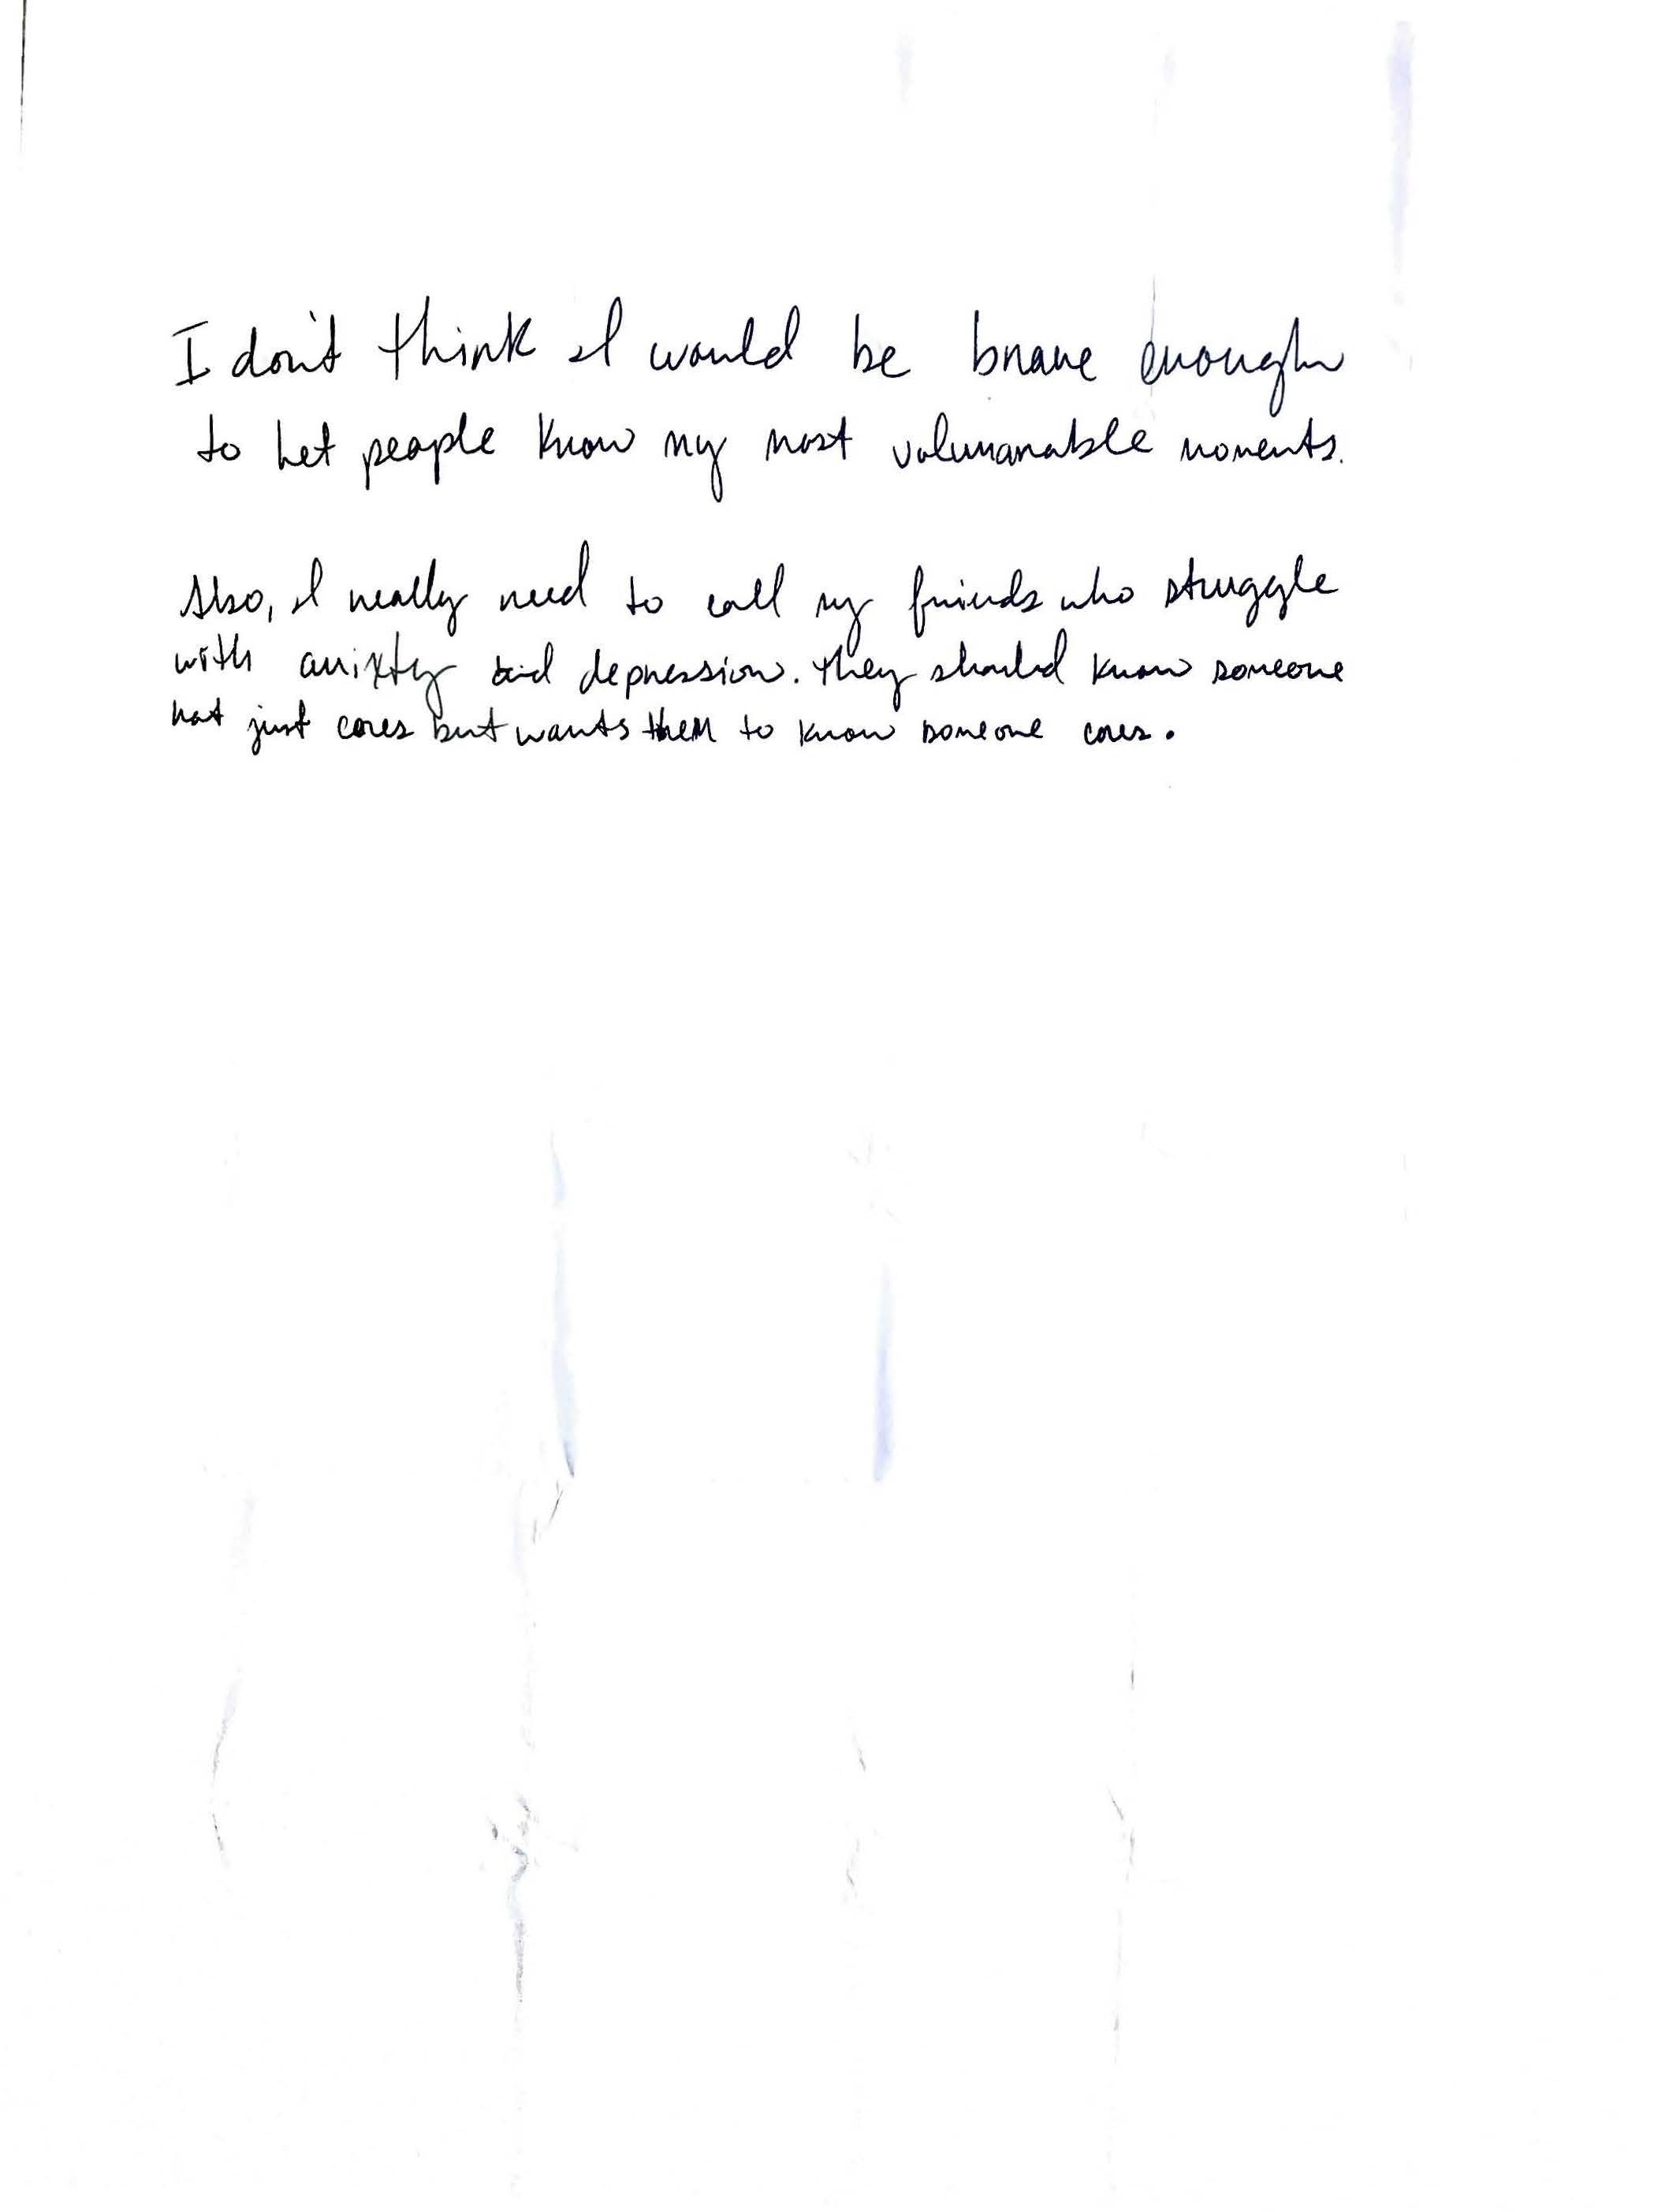 I don't think I would be brave enough
to let people know my most volumanable moments.
Also, I really need to call my friends who struggle
with anixty and depression. they should know someone
not just cares but wants them to know someone cares.